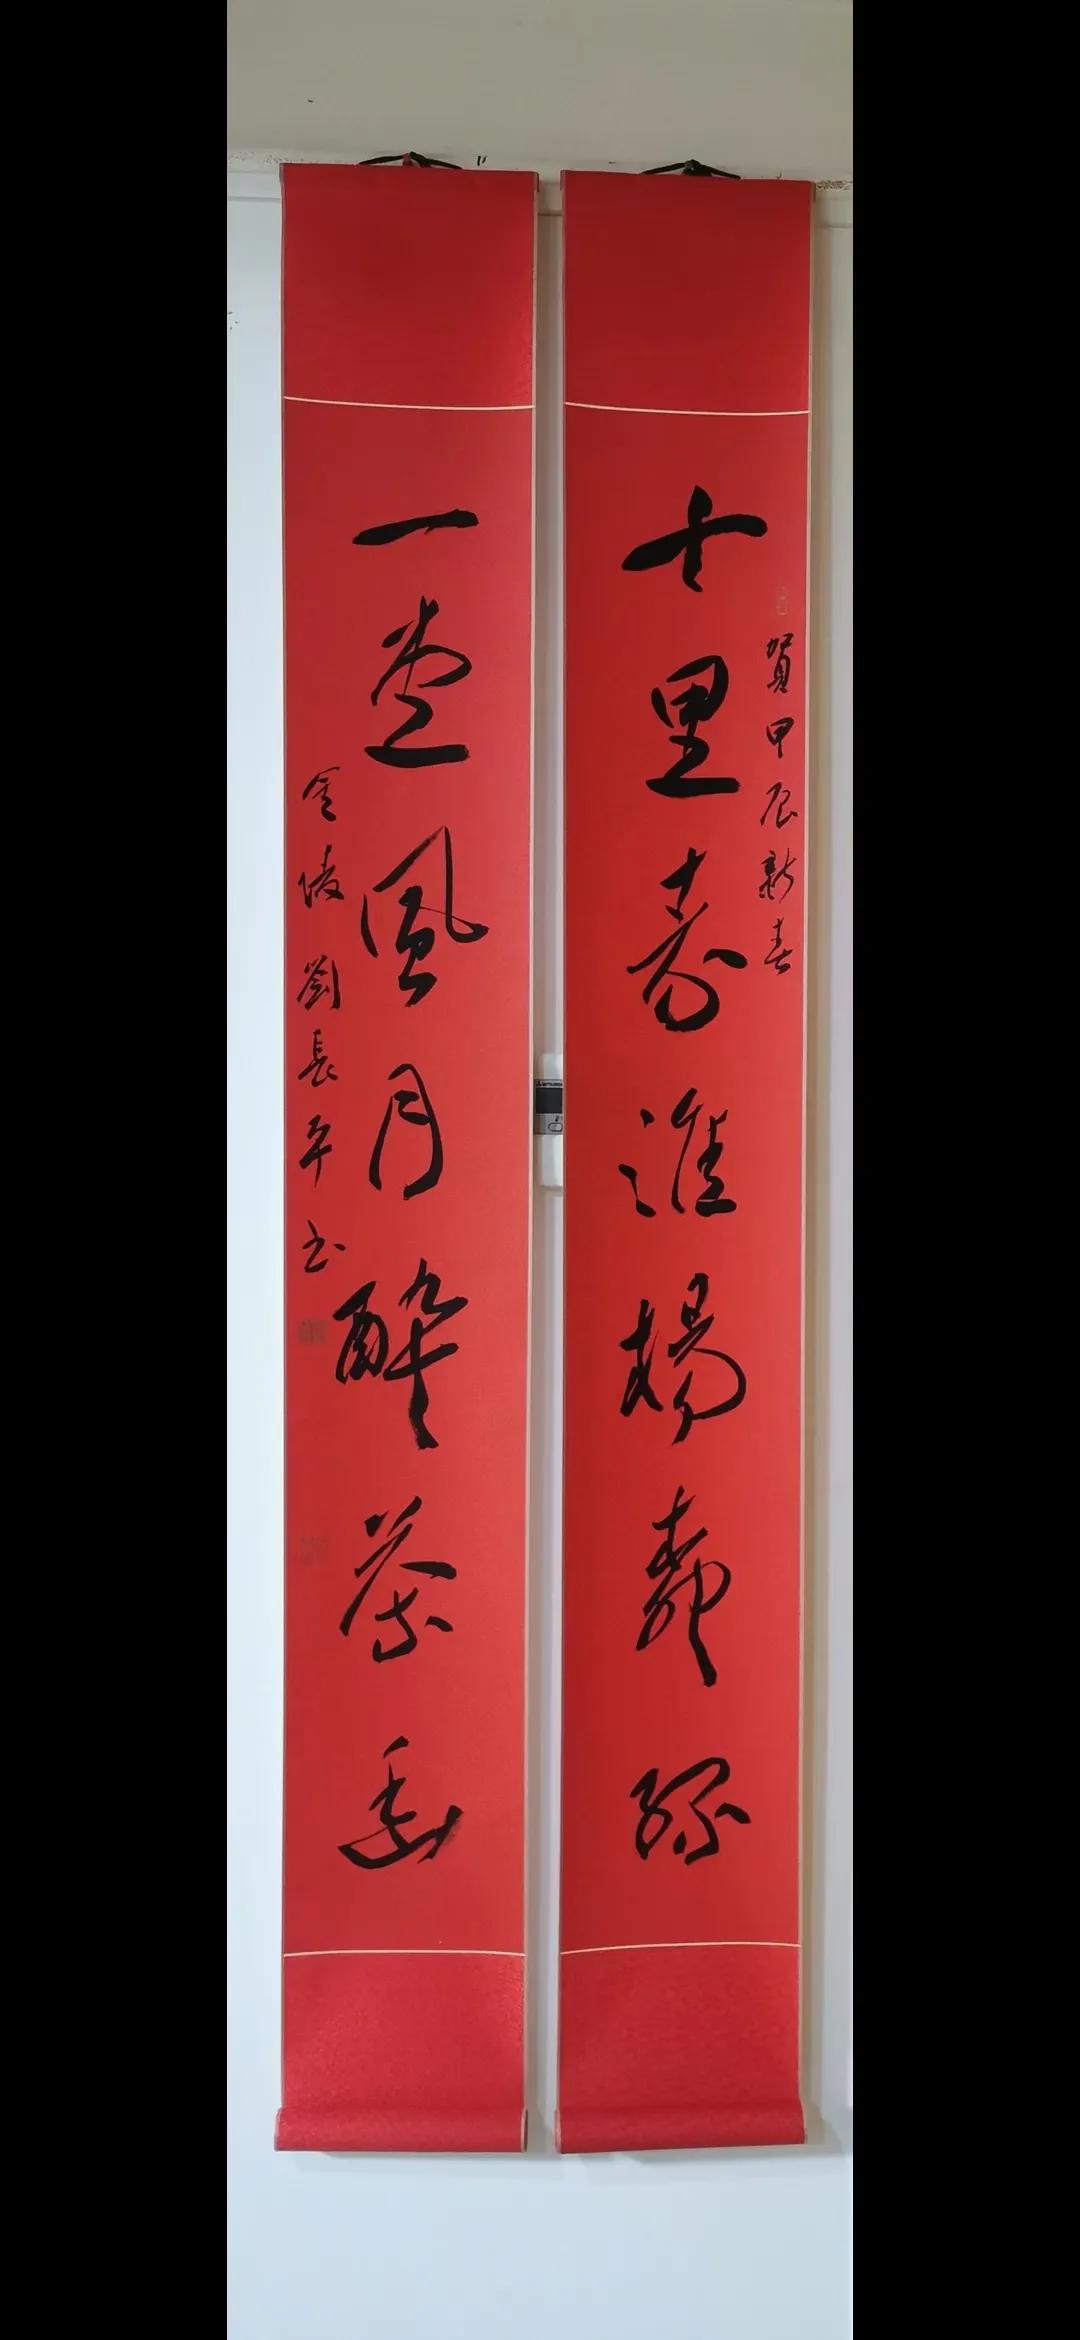 賀甲辰新春
十里秦淮楊
一壺風月醉茶香
金陵劉長平书